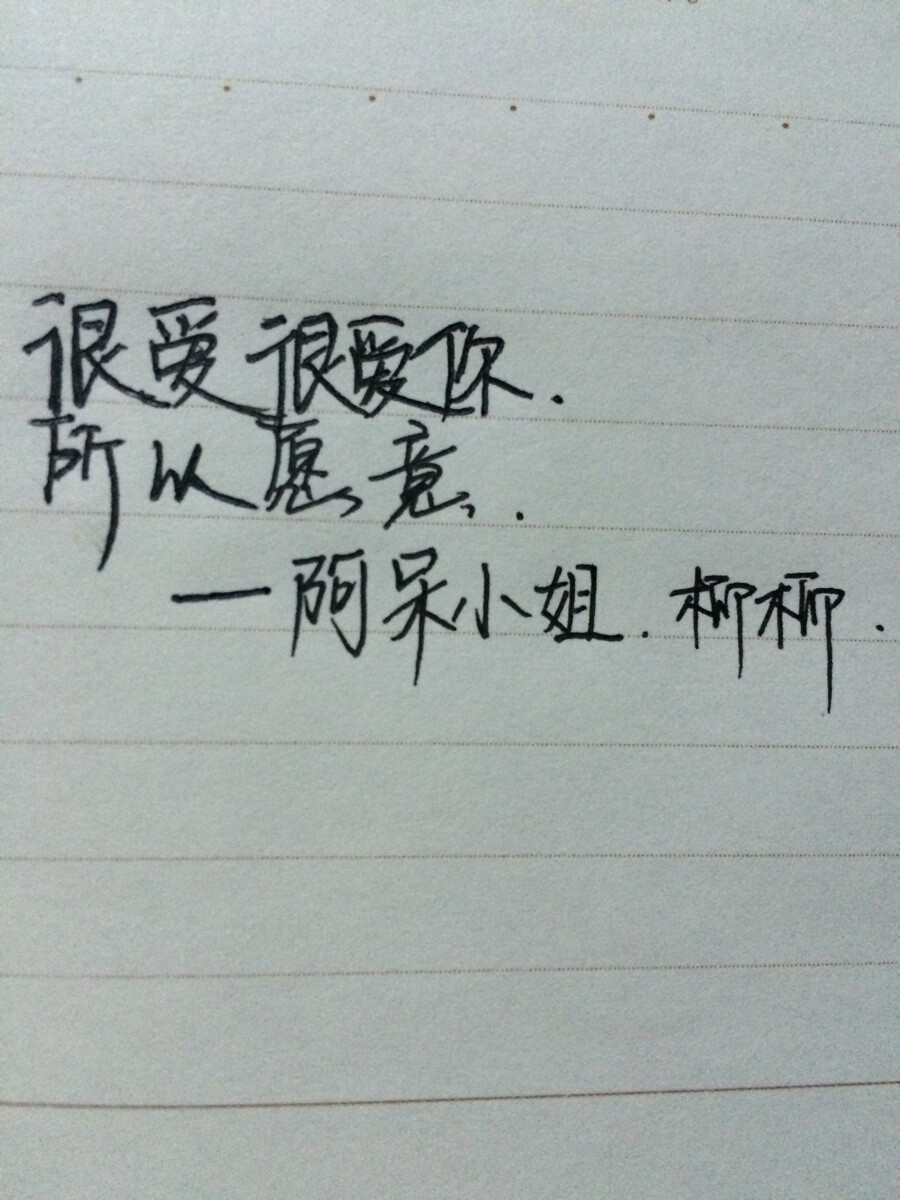 很爱很爱你.
所以愿意..
—阿呆小姐.柳柳.